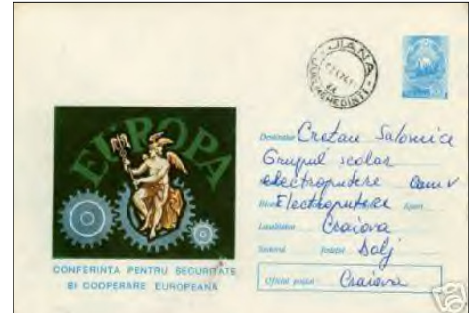 EUROPA
CONFERINTA PENTRU SECURITATE
SI COOPERARE EUROPEANA
JIANA
MEHEDINTI
Destinatar Cretan Salomica
Grupul scolar
electroputere Cam V
Electroputere Apart.
Localitatea Craiova
Sectorul Judeţul Dolj
Oficiul poştal Craiova